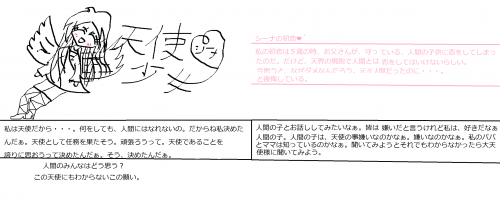 天使
少女
シーナ
シーナの初恋❤
私の初恋は5歳の時、お父さんが、守っている、人間の子供に恋をしてしまっ
たのだ。だけど、天界の規則で人間とは 恋をしてはいけないらしい。
今思うと、なぜダメなんだろう、天使も人間だったのに・・・。
と後悔している。
私は天使だから・・・。何をしても、人間にはなれないの。だから私決めた
んだぁ。天使として任務を果たそう。頑張ろうって。天使であることを
誇りに思おうって決めたんだぁ。そう、決めたんだぁ。
人間のみんなはどう思う？
この天使にもわからないこの願い。
人間の子とお話ししてみたいなぁ。皆は 嫌いだと言うけれど私は、好きだなぁ
人間の子。人間の子は、天使の事嫌いなのかなぁ。嫌いなのかなぁ。私のパパ
とママは知っているのかなぁ。聞いてみようとそれでもわからなかったら大天
使様に聞いてみよう。